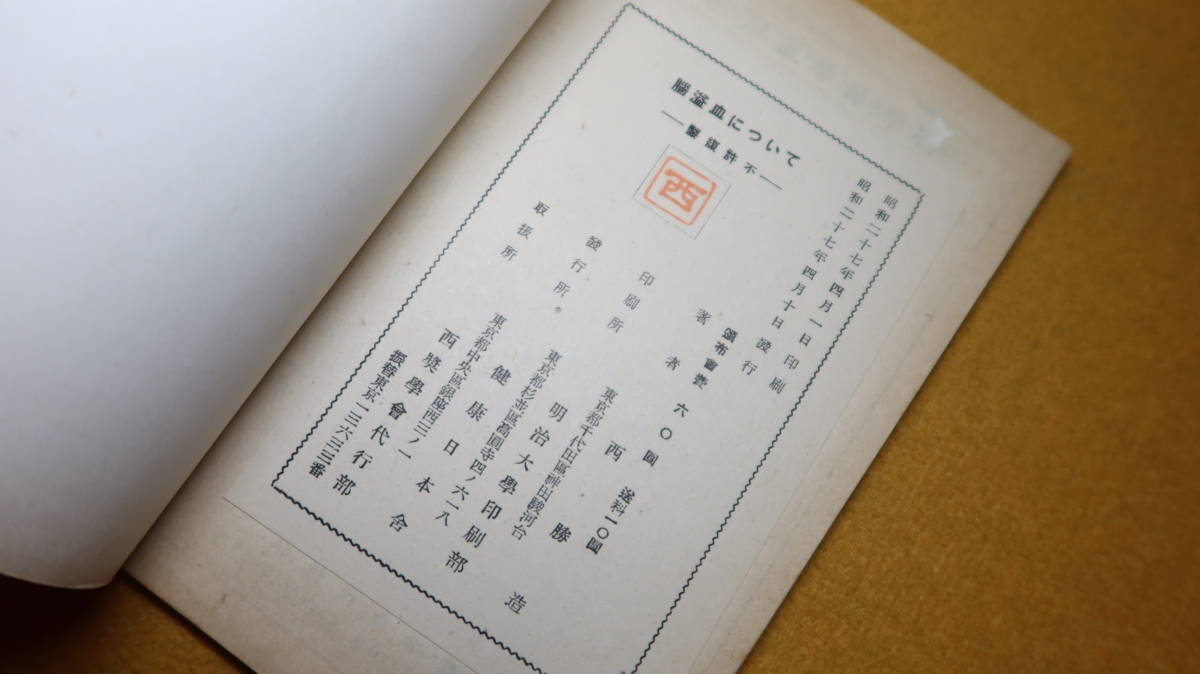 腦溢血について
―不許復製―
西
昭和二十七年四月一日印刷
昭和二十七年四月十日發行
頒布實費 六〇圓 送料一〇圓
著者 西勝造
東京都千代田區神田駿河台
印刷所 明治大學印刷部
東京都杉並區高圓寺四ノ六一八
發行所 健康日本舎
東京都中央區銀座西三ノ一
取扱所 西奬學會代行部
振替東京一三六三三番